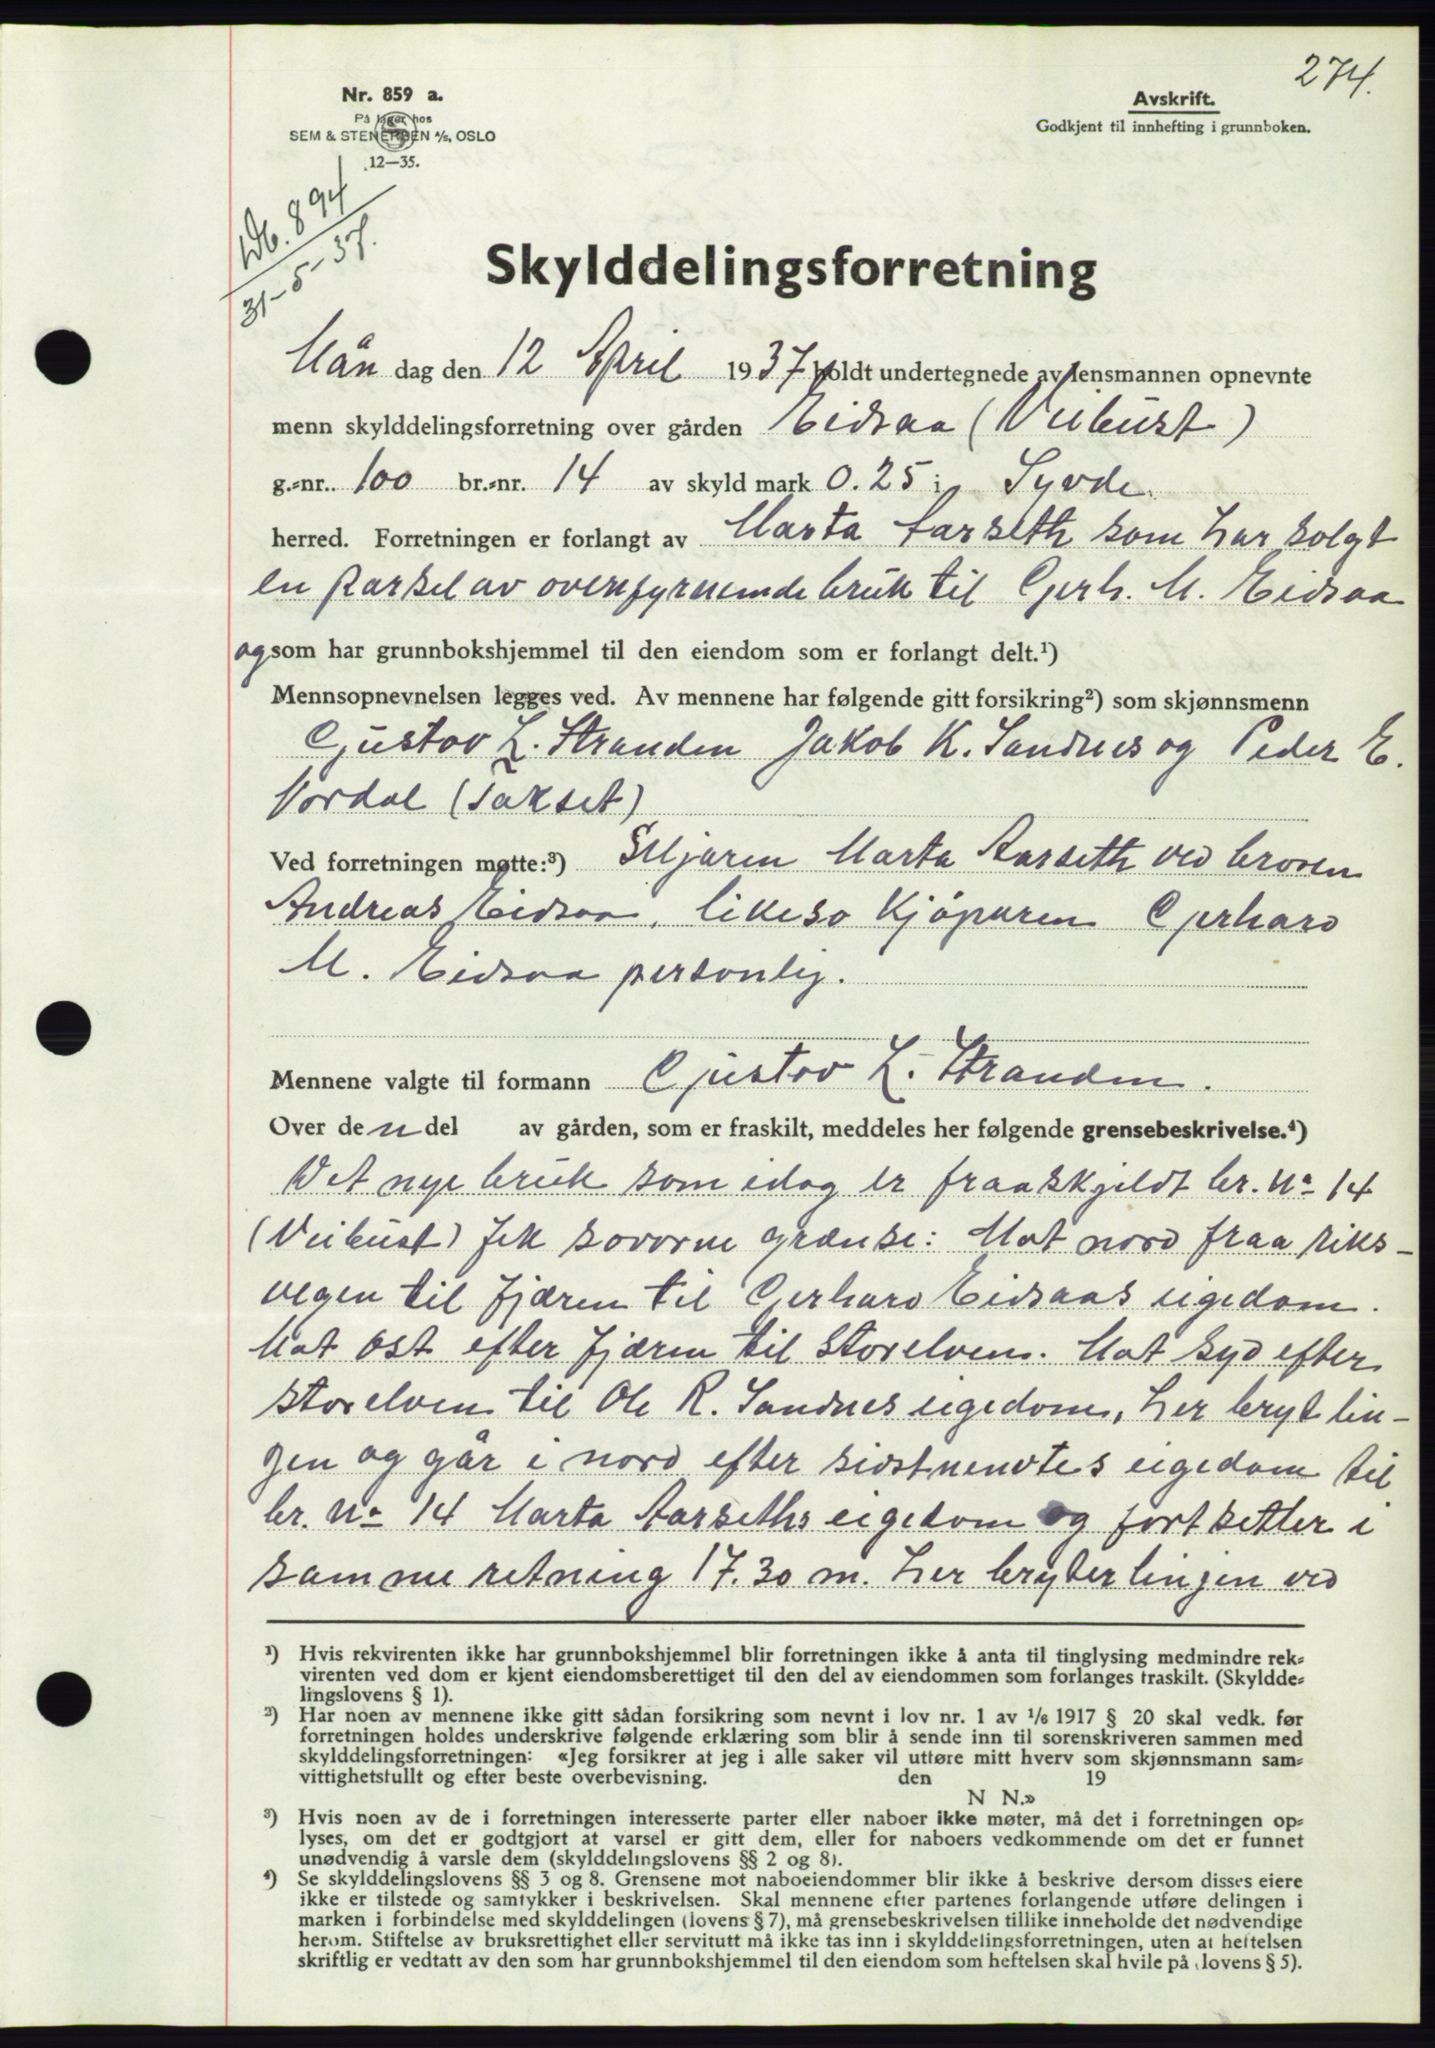 274.
Nr. 859 a.
På lager hos
SEM & STENERSEN A/S, OSLO
12—35.
Avskrift.
Godkjent til innhefting i grunnboken.
Db. 894
31-5-37.
Skylddelingsforretning
Mån dag den 12 April 1937 holdt undertegnede av lensmannen opnevnte
menn skylddelingsforretning over gården Eidsaa (Veibust)
g.-nr. 100 br.-nr. 14 av skyld mark 0.25 i Syvde.
herred. Forretningen er forlangt av Marta Aarseth som har solgt
en parsel av ovenfyrnemde bruk til Gerh. M. Eidsaa
og som har grunnbokshjemmel til den eiendom som er forlangt delt.¹)
Mennsopnevnelsen legges ved. Av mennene har følgende gitt forsikring²) som skjønnsmenn
Gustav L. Stranden Jakob K. Sandnes og Peder E.
Nordal (Takset)
Ved forretningen møtte:³) Seljaren Marta Aarseth ved broren
Andreas Eidsaa, likeso kjöparen Gerhard
M. Eidsaa personlig.
Mennene valgte til formann Gustav L. Stranden.
Over den del av gården, som er fraskilt, meddeles her følgende grensebeskrivelse.⁴)
Det nye bruk som idag er fraaskjeldt br. No 14
(Veibust) fek sovorne grænse: Mot nord fraa riks-
vegen til fjæren til Gerhard Eidsaas eigedom.
Mot ost efter fjæren til storelven. Mot syd efter
storelven til Ole R. Sandnes eigedom, her bryt lin-
jen og går i nord efter sidstnevntes eigedom til
br. No 14 Marta Aarseths eigedom og fortsetter i
samme retning 17.30 m. her bryter linjen ved
¹) Hvis rekvirenten ikke har grunnbokshjemmel blir forretningen ikke å anta til tinglysing medmindre rek-
virenten ved dom er kjent eiendomsberettiget til den del av eiendommen som forlanges fraskilt. (Skyldde-
lingslovens § 1).
²) Har noen av mennene ikke gitt sådan forsikring som nevnt i lov nr. 1 av 1/6 1917 § 20 skal vedk. før
forretningen holdes underskrive følgende erklæring som blir å sende inn til sorenskriveren sammen med
skylddelingsforretningen: «Jeg forsikrer at jeg i alle saker vil utføre mitt hverv som skjønnsmann sam-
vittighetsfullt og efter beste overbevisning. den 19
N N.»
³) Hvis noen av de i forretningen interesserte parter eller naboer ikke møter, må det i forretningen op-
lyses, om det er godtgjort at varsel er gitt dem, eller for naboers vedkommende om det er funnet
unødvendig å varsle dem (skylddelingslovens §§ 2 og 8).
⁴) Se skylddelingslovens §§ 3 og 8. Grensene mot naboeiendommer blir ikke å beskrive dersom disses eiere
ikke er tilstede og samtykker i beskrivelsen. Skal mennene efter partenes forlangende utføre delingen i
marken i forbindelse med skylddelingen (lovens § 7), må grensebeskrivelsen tillike inneholde det nødvendige
herom. Stiftelse av bruksrettighet eller servitutt må ikke tas inn i skylddelingsforretningen, uten at heftelsen
skriftlig er vedtatt av den som har grunnbokshjemmel til den eiendom som heftelsen skal hvile på (lovens § 5).